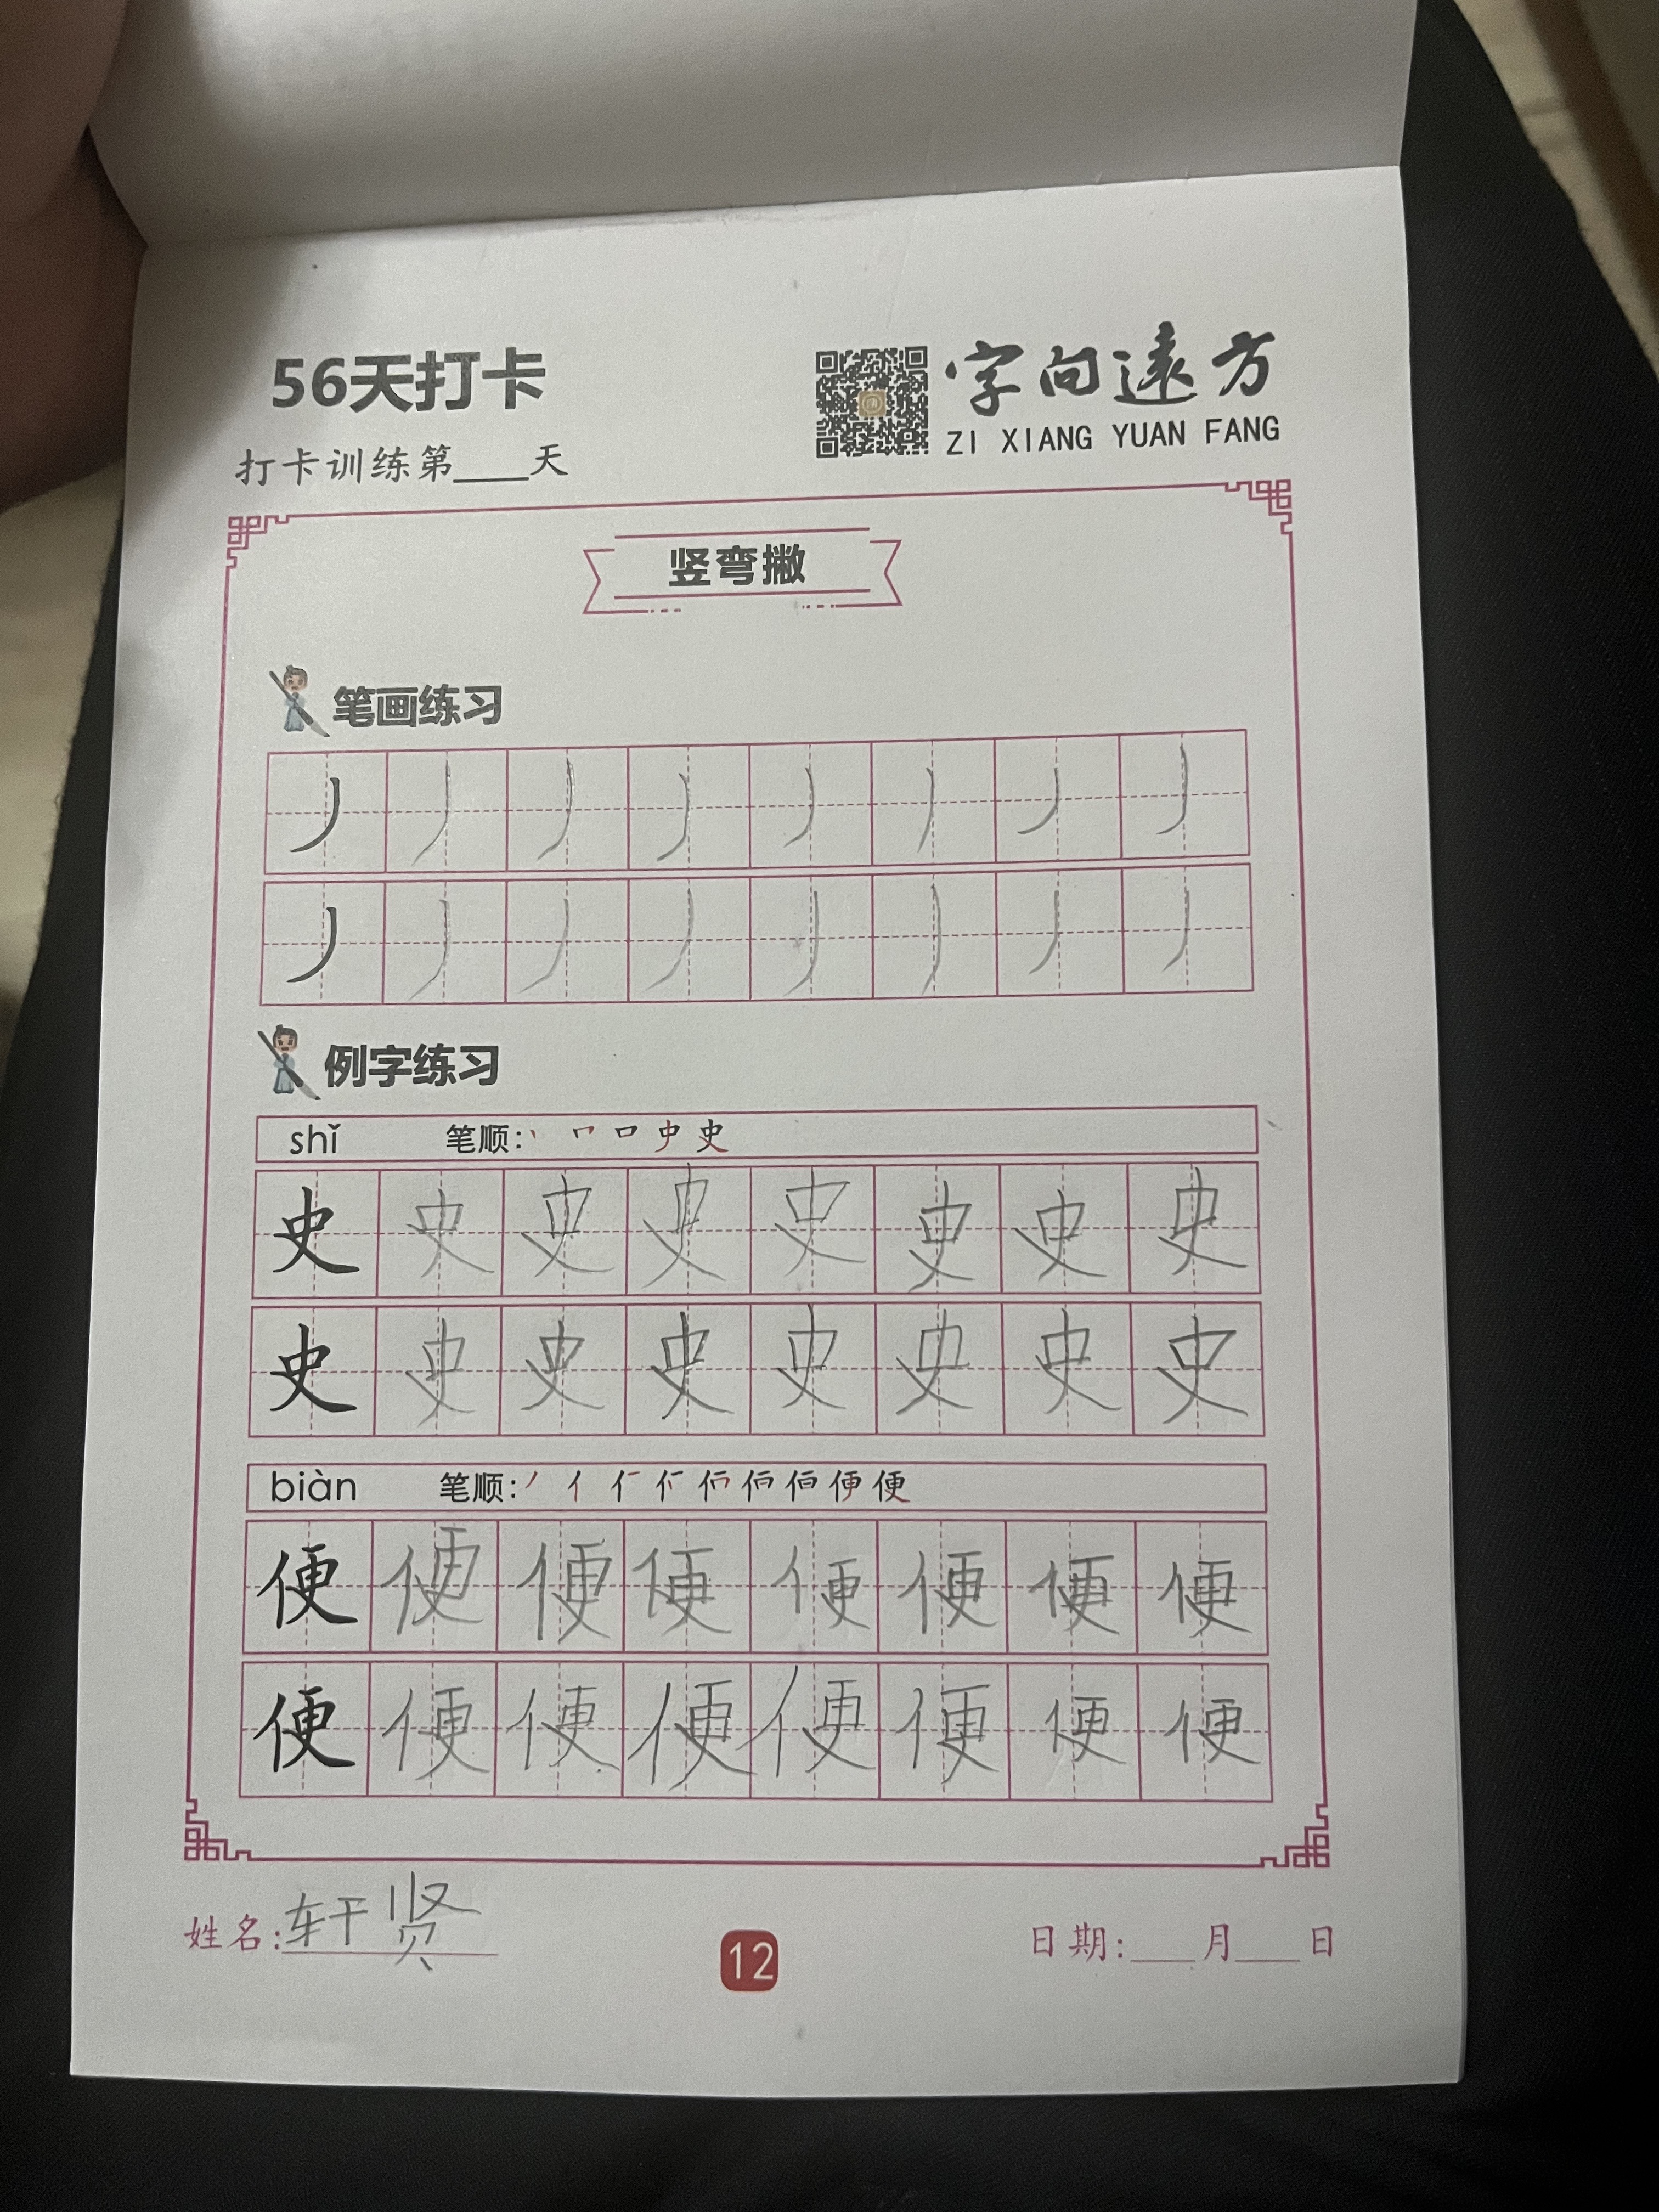 56天打卡
字向遠方
ZI XIANG YUAN FANG
打卡训练第____天
竖弯撇
笔画练习
丿 丿 丿 丿 丿 丿 丿 丿
丿 丿 丿 丿 丿 丿 丿 丿
例字练习
shǐ 笔顺: 丨 𠃍 口 史 史
史 史 史 史 史 史 史 史
史 史 史 史 史 史 史 史
biàn 笔顺: 丿 亻 便 便
便 便 便 便 便 便 便 便
便 便 便 便 便 便 便 便
姓名: 轩贤
12
日期:____月____日